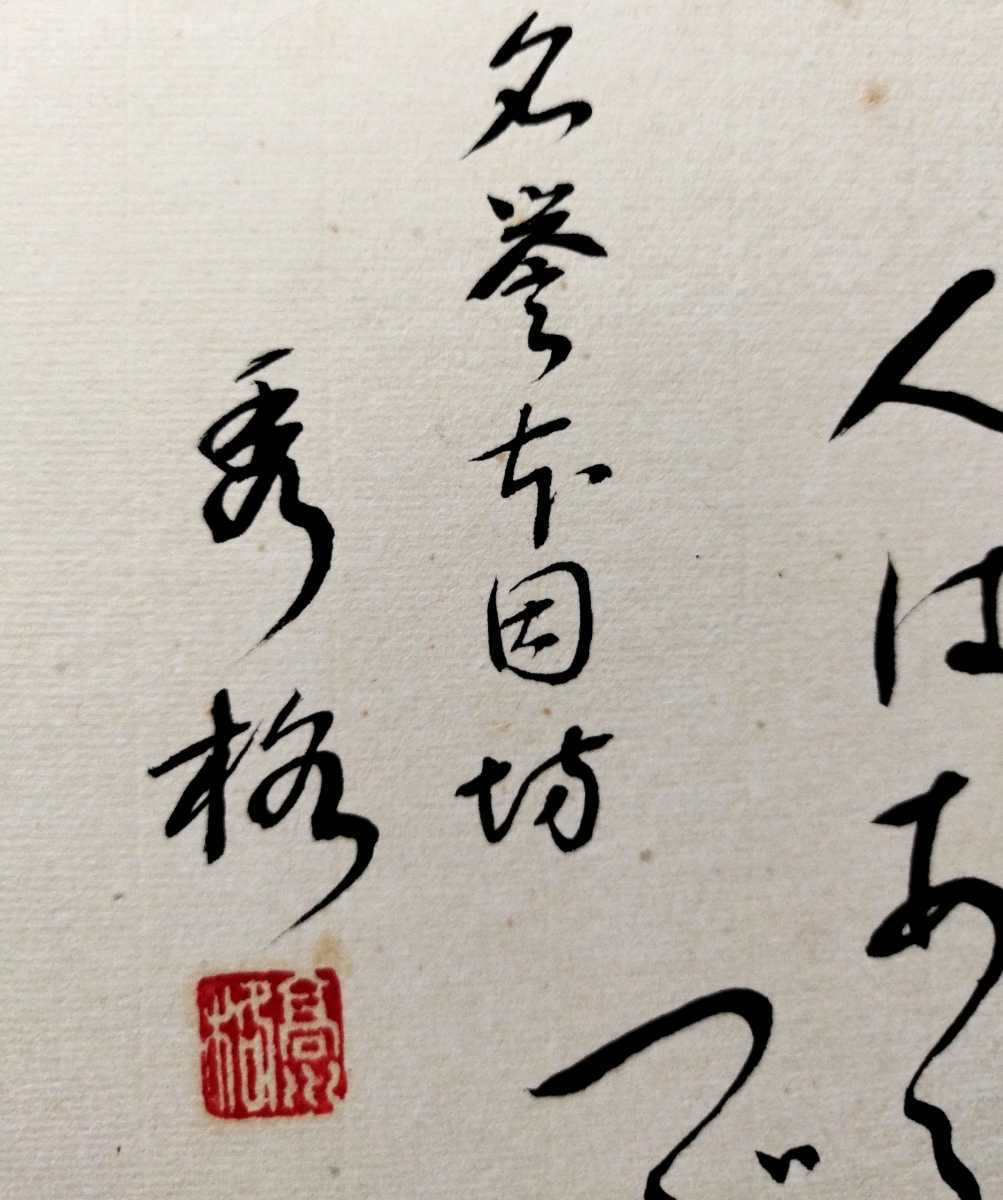 人はあ
名誉本因坊
秀格
高川格